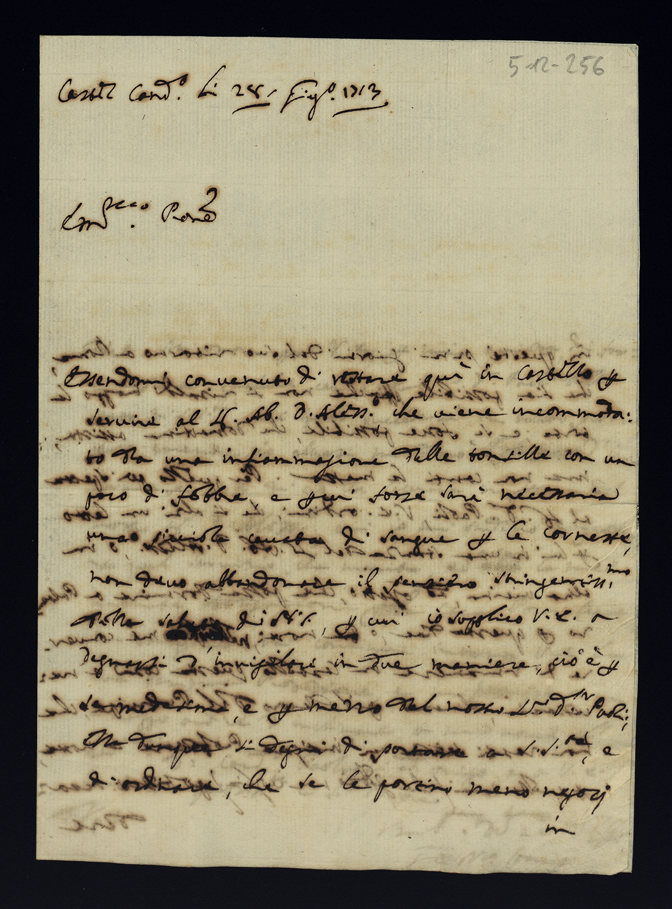 5-12-256
Castel Gand.o li 28. Giug.o 1713
Em.o Prone
Essendomi convenuto di restare quì in Castello p
servire al S. Ab. D. Aless. che viene incommoda:
to da una infiammazione delle tonsille con un
poco di febbre, e quì forse sarà necessaria
una piccola cavata di sangue p le
non devo abbandonare il pensiero stringentiss.mo
della salute di S. S., p cui io supplico V. E. a
degnarsi d'invigilare in due maniere, cioè p
se medesima, e p mezzo del nostro
si degni di portarsi a S. S.tà, e
di ordinare, che se le portino meno negozj
in